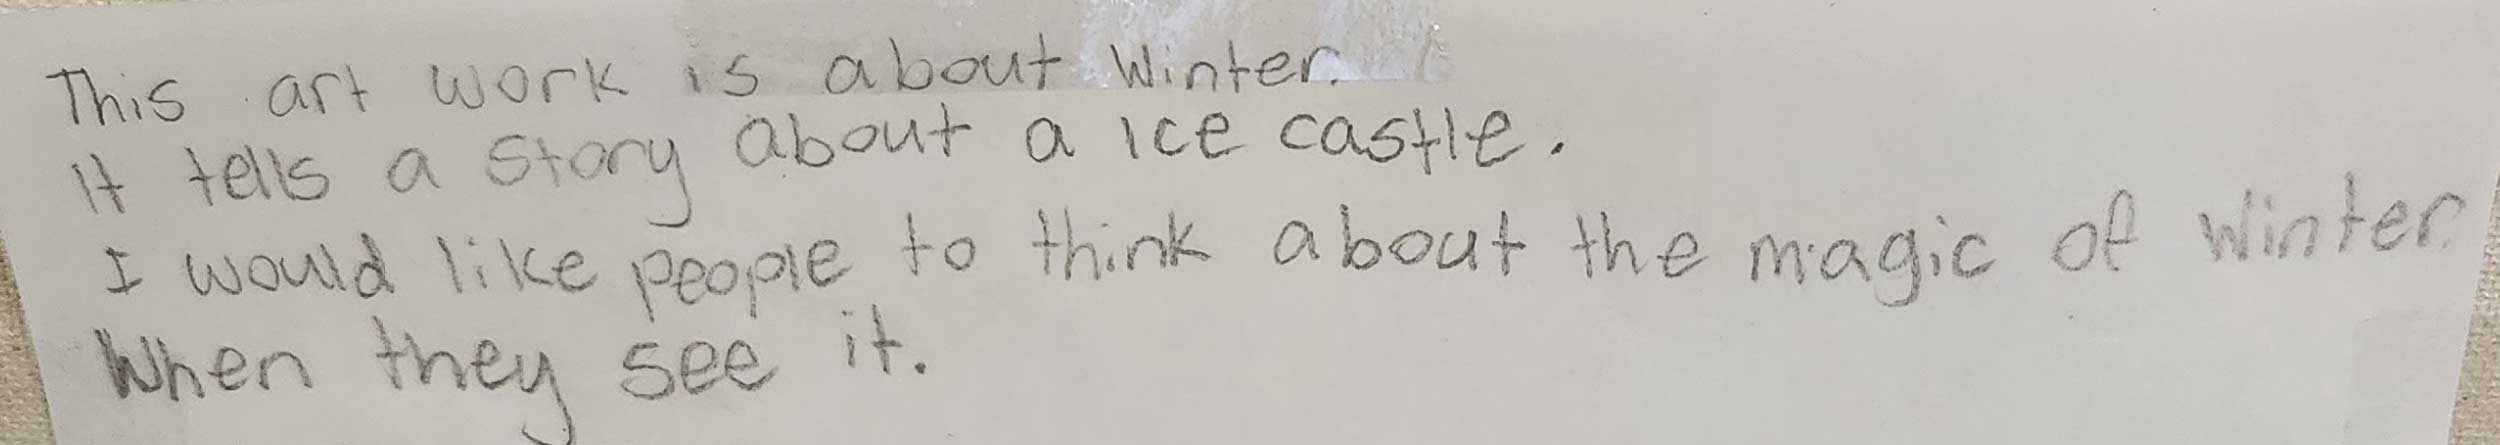 This art work is about Winter.
It tells a Story about a ice castle.
I would like people to think about the magic of Winter.
When they see it.